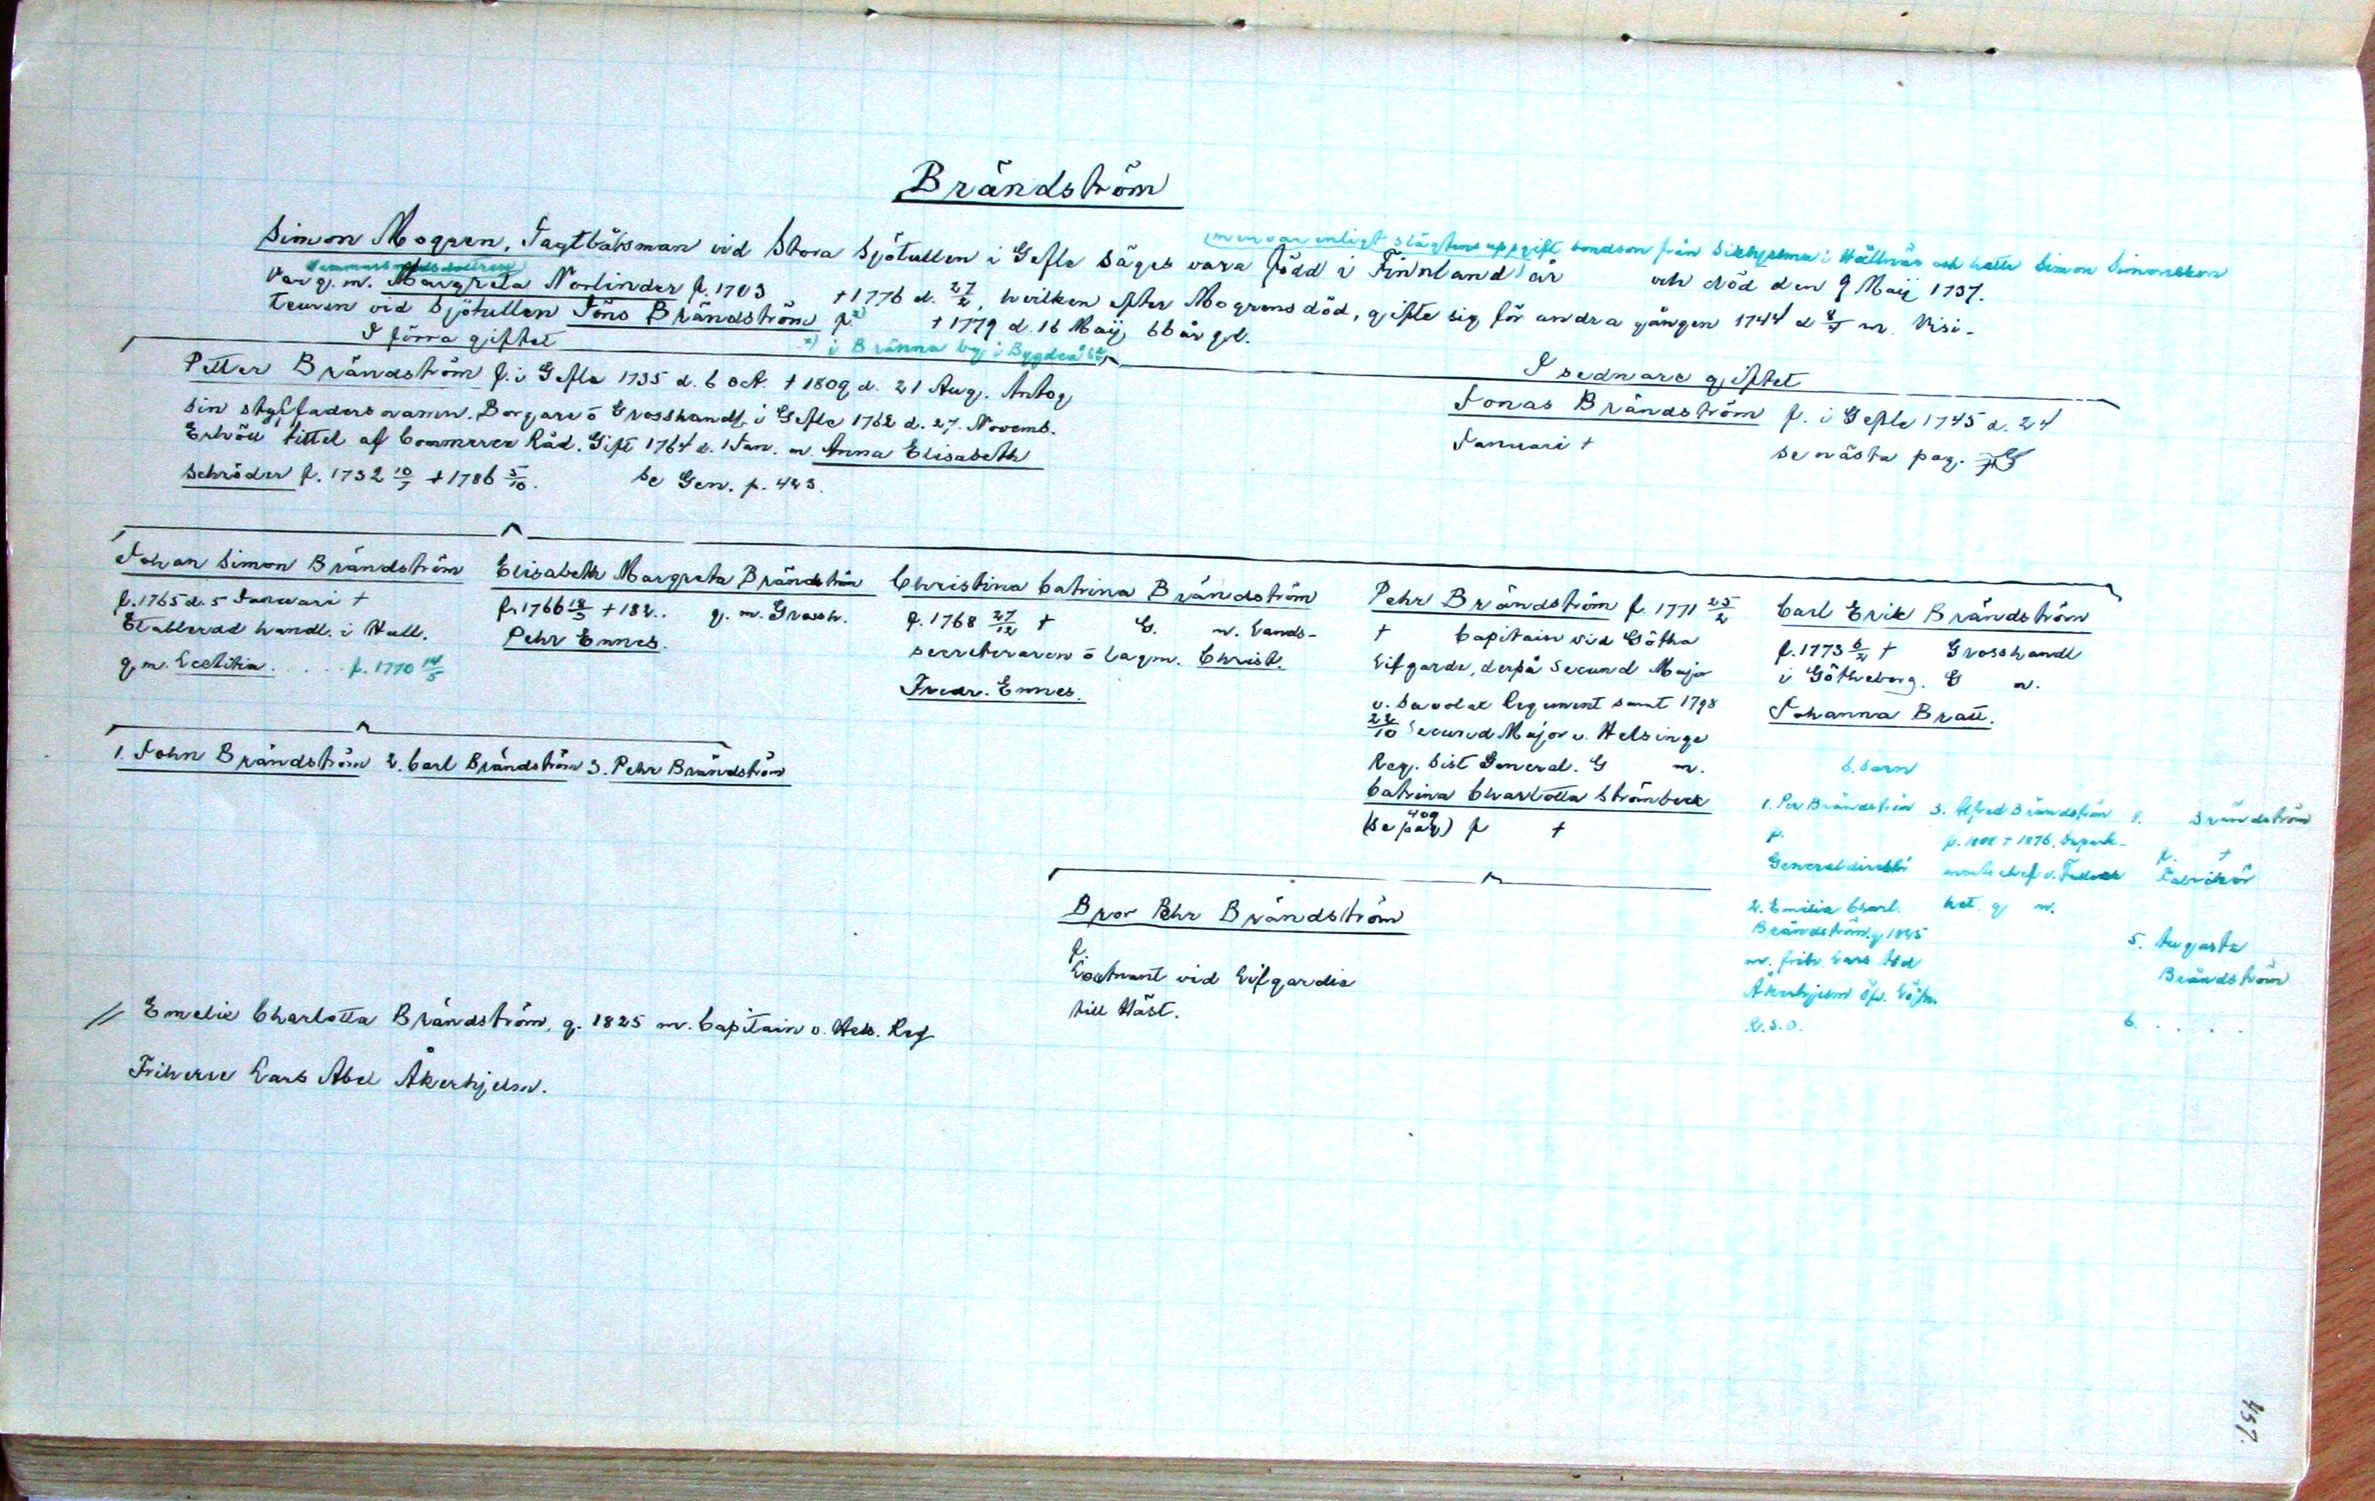 Brändström
(men var enligt slägtens uppgift bondson från Sikhjelma i Hållnäs och hette Simon Simonsson
Simon Mogren, Jagtbåtsman vid Stora Sjötullen i Gefle säges vara född i Finnland år och död den 9 Maij 1737.
Var g. m. Margreta Norlinder f. 1703 †1776 d. 27/2, hvilken efter Mogrens död, gifte sig för andra gången 1744 d m. Visi-
teuren vid Sjötullen Jöns Brändström f. x) † 1779 d. 16 Maij, 66 år gl.
x) i Bränna by i Bygdeå
I förra giftet
I sednare giftet
Petter Brändström f. i Gefle 1735 d. 6 oct. † 1809 d. 21 Aug. Antog
sin styffaders namn. Borgare o Grosshandl. i Gefle 1762 d. 27. Novemb.
Erhöll tittel af Commerce Råd. Gift 1764 d. 1 Jan. m. Anna Elisabeth
Schröder f. 1732 10/7 † 1786 5/10. Se Gen. p. 423.
Jonas Brändström f. i Gefle 1745 d. 24
Januari † se nästa pag.
Johan Simon Brändström
f. 1765 d. 5 Januari †
Etablerad handl. i Hull.
g. m. Lætitia . . . . . f. 1770 14/5
Elisabeth Margreta Brändström
f. 1766 18/3 † 182.. g. m. Grossh.
Pehr Ennes.
Christina Catrina Brändström
f. 1768 27/12 † G. m. Lands-
secreteraren o Lagm. Christ.
Fredr. Ennes.
Pehr Brändström f. 1771 25/2
† Capitain vid Götha
Lifgarde, derpå Secund Major
v. Savolax Regement samt 1798
22/10 Secund Major v. Helsinge
Reg. Sist General. G m.
Catrina Charlotta Strömbeck
(se pag 409) f †
Carl Erik Brändström
f. 1773 6/2 † Grosshandl
i Götheborg. G m.
Johanna Bratt.
6. barn
1. John Brändström 2. Carl Brändström 3. Pehr Brändström
1. Per Brändström
f.
Generaldirektör
2. Emilia Charl.
Brändström g 1825
m. frih. Lars Abel
Åkerhjelm öf. Löjtn.
R.S.O.
3. Alfred Brändström
f. 1808 † 1876. Depart-
mentschef v.
g m.
4. Brändström
f. †
Fabrikör
5. Augusta
Brändström
6. . . . .
Bror Pehr Brändström
f.
Löjtnant vid Lifgardie
till Häst.
// Emelie Charlotta Brändström, g. 1825 m. Capitain v. Hels. Reg
Friherre Lars Abel Åkerhjelm.
437.